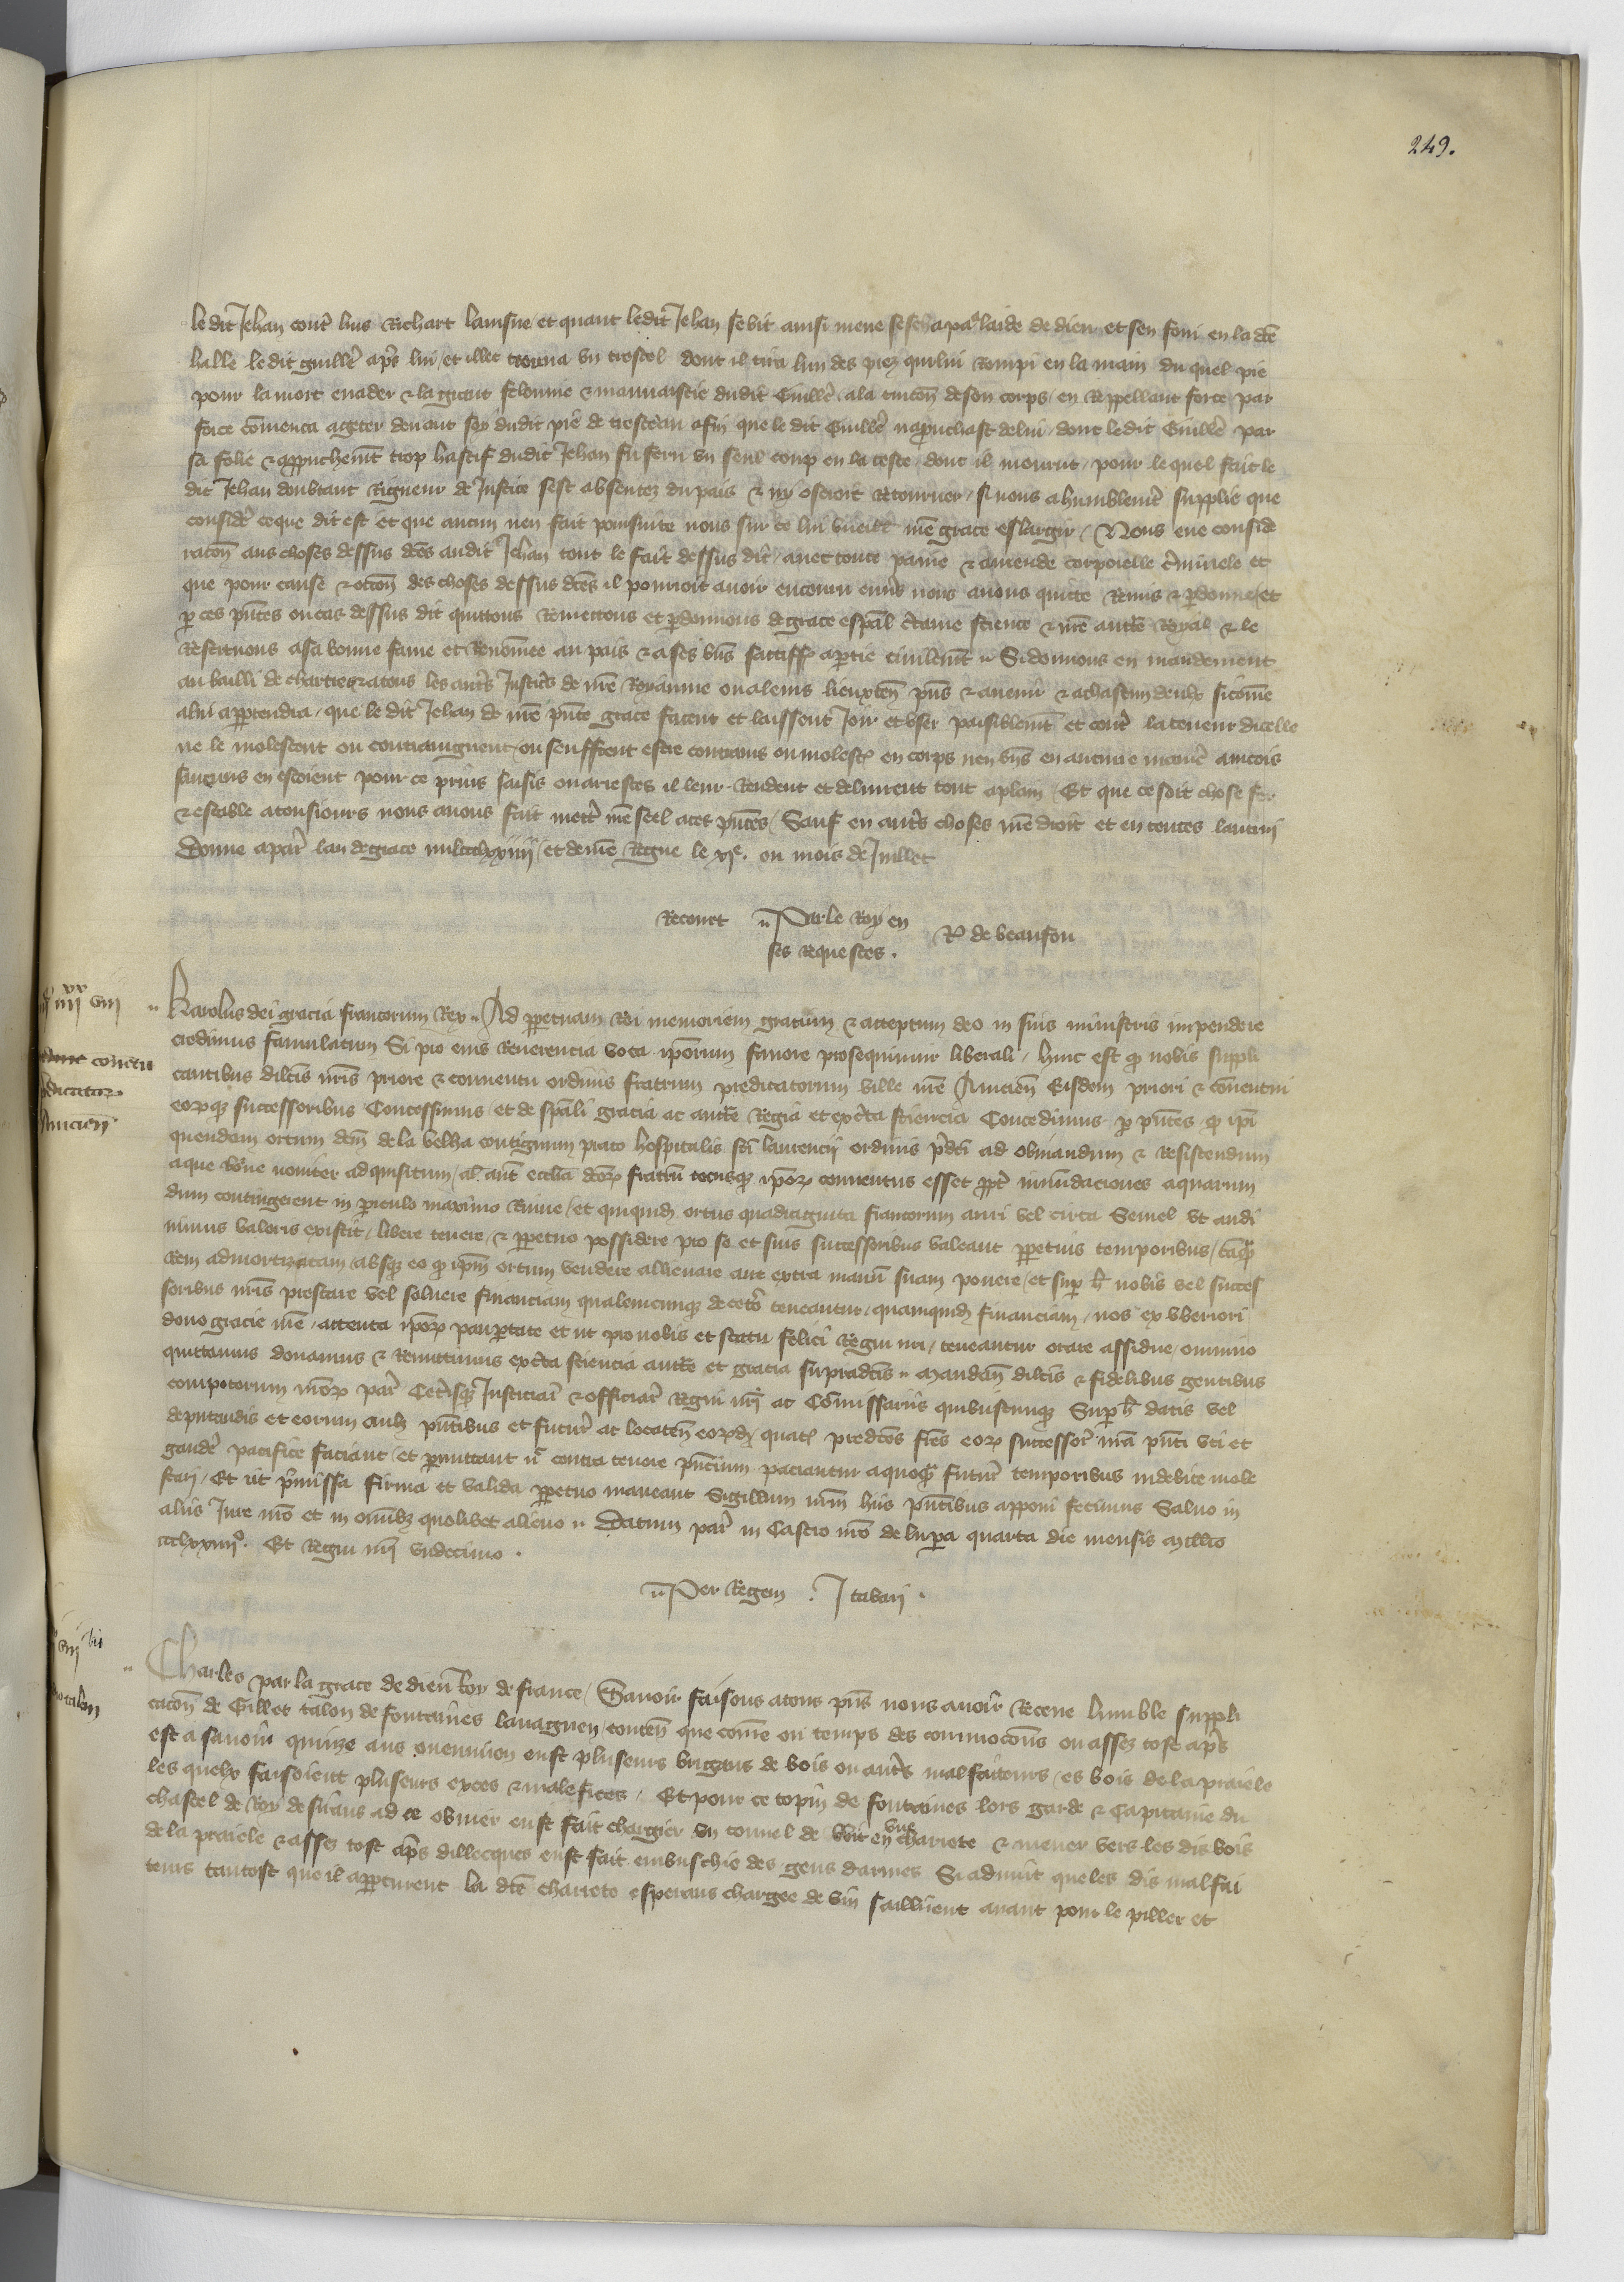 249.
le dit Jehan cont̃ luis Richart lamsne et quant ledit Jehan se vit ainsi mene se eschapa a laide de dieu et sen foui en la dc̃e
halle le dit guill̃e ap̃s lui / et illec trouva un trestel dont il tira lun des piez qui lui rompi en la main du quel pie
pour la mort evader & la grant felonnie & mauvaistie dudit Guill̃e ala tuic̃on de son corps / en reppellant force par
force com̃enca a geter devant soy dudit pie de tresteau afin que le dit Guill̃e napruchast de lui / dont ledit Guill̃e par
sa folie & appruchem̃t trop hastif dudit Jehan fu feru un seul coup en la teste / dont il mourut / pour le quel fait le
dit Jehan doubtant rigueur de Justice sest absentez du pais & ny oseroit retourner / si nous a humblem̃t supplie que
consid̃e ce que dit est et que aucun nen fait poursuite nous sur ce lui vueill̃ nr̃e grace eslargir / Nous eue conside
rac̃on aus choses dessus dc̃es audit Jehan tout le fait dessus dit / avec toute paine & amende corporelle c̃minele et
que pour cause & occ̃on des choses dessus dc̃es il pourroit avoir encouru env̾s nous avons quitte remis & p̱donne / et
p̱ ces pñtes ou cas dessus dit quittons remettons et p̱donnons de grace esp̃al c̃taine science & nr̃e auct̃e royal & le
restituons a sa bonne fame et renom̃ee au pais & a ses biẽs satiffc̃ᵒⁿ a partie civilem̃t // Si donnons en mandement
au bailli de chartres & a tous les aut̾s Justic̃s de nr̃e Royaume ou a leurs lieuxteñ p̃ns & avenir & a chascun deulx si com̃e
a lui app̱tendra / que le dit Jehan de nr̃e pñte grace facent et laissent Joir et user paisiblem̃t et cont̃ la teneur dicelle
ne le molestent ou contraingnent / ou seuffrent estre contrains ou molestz en corps nen biẽs en aucune maniẽ aincois
saucuns en estoient pour ce prins saisis ou arrestes il leur rendent et delivrent tout aplain / Et que ce soit chose ferme
& estable a tousiours nous avons fait mett̃ nr̃e seel a ces pñtes / Sauf en aut̾s choses nr̃e droit et en toutes lautrui
Donne a pař lan de grace mil ccclxxiiii / et de nr̃e Regne le xjᵉ. ou mois de Juillet
Reconet // Par le Roy en
ses requestes. R̃ de beaufou
iiijˣˣ viij
// Karolus dei gracia francorum Rex // Ad p̱petuam Rei memoriam gratum & acceptum deo in suis ministris impendere
credimus famulatum Si pro eius reverencia vota ip̃orum favore prosequimur liberali / hinc est q̃ nobis suppli
cantibus dilc̃is nr̃is priore & conventu ordinis fratrum predicatorum ville nr̃e Anicieñ Eisdem priori & conventui
eorumqꝫ successoribus Concessimus / et de sp̃ali gracia ac auct̃e Regia et ex c̃ta sciencia Concedimus p̱ pñtes q̃ ip̃i
quendam ortum dc̃m de la velha contiguum prato hospitalis sc̃i laurencij ordinis p̃dc̃i ad obviandum & resistendum
aque b'ne noviter adquisitum / al̃ ãnt eccl̃ia dc̃oꝝ fratrũ totusqꝫ ip̃oꝝ conventus esset pp̃t inũndaciones aquarum
dum contingerent in p̱iculo maximo ruine / et quiquidẽ ortus quadraginta francorum auri vel circa Semel ut audi
vimus valoris existit / libere tenere / & p̱petuo possidere pro se et suis successoribus valeant p̱petuis temporibus / tãq̃
rem admortizatam / absqꝫ eo q̃ ip̃m ortum vendere alienare aut extra manũ suam ponere / et sup̱ h̃ nobis vel succes
soribus nr̃is prestare vel solvere financiam qualemcumqꝫ de cet̾o teneantur / quamquidẽ financiam / nos ex uberiori
dono gracie nr̃e / attenta ip̃oꝝ paup̱tate et ut pro nobis et statu felici Regni nr̃i / teneantur orare assidue / omnino
quittamus donamus & remittimus ex c̃ta sciencia auct̃e et gracia supradc̃is // Mandam̃ dilc̃is & fidelibus gentibus
compotorum nr̃oꝝ pař Cet̾isqꝫ Justiciar̃ & officiar̃ Regni nr̃i ac Com̃issariis quibuscumqꝫ Sup̱ h̃ datis vel
deputandis et eorum cuilꝫ pñtibus et futur̃ ac locateñ eoꝝdẽ / quatꝫ predc̃os fr̃es eoꝝ successor̃ nr̃a pñti uti et
gaudẽ pacifice faciant / et p̱mittant nᶜ contra tenorẽ pñcium paciantur a quoq̃ futur̃ temporibus indebite mole
stari / Et ut p̃missa firma et valida p̱petuo maneant Sigillum nr̃m hiis pñtibus apponi fecimus Salvo in
aliis Jure nr̃o et in om̃ibꝫ quolibet alieno // Datum pař in Castro nr̃o de lup̱a quarta die mensis Millõ
ccclxxiiijᵒ. Et Regni nr̃i undecimo.
// Per Regem. J tabari.
talon
// Charles par la grace de dieu Roy de france / Savoir faisons a tous p̃ns nous avoir receue lumble suppli
cac̃on de Gillet talon de fontaines lavaguen / conteñ que com̃e ou temps des com̃moc̃ons ou assez tost ap̃s
est a savoir quinze ans ou environ eust pluseurs brigans de bois ou aut̾s malfaiteurs / es bois de la praiele
les quelx faisoient pluseurs exces & malefices / Et pour ce topin de fontaines lors garde & Capitaine du
chastel de Roy de suans ad ce obvier eust fait chargier un tonnel de vin en une chariete & mener vers les dis bois
de la praiele & assez tost ap̃s dillecques eust fait embuschie des gens darmes Si advint que les dis malfai
teurs tantost que il apparcurent la dc̃e chariete esperans chargee de vin saillirent avant pour le piller et